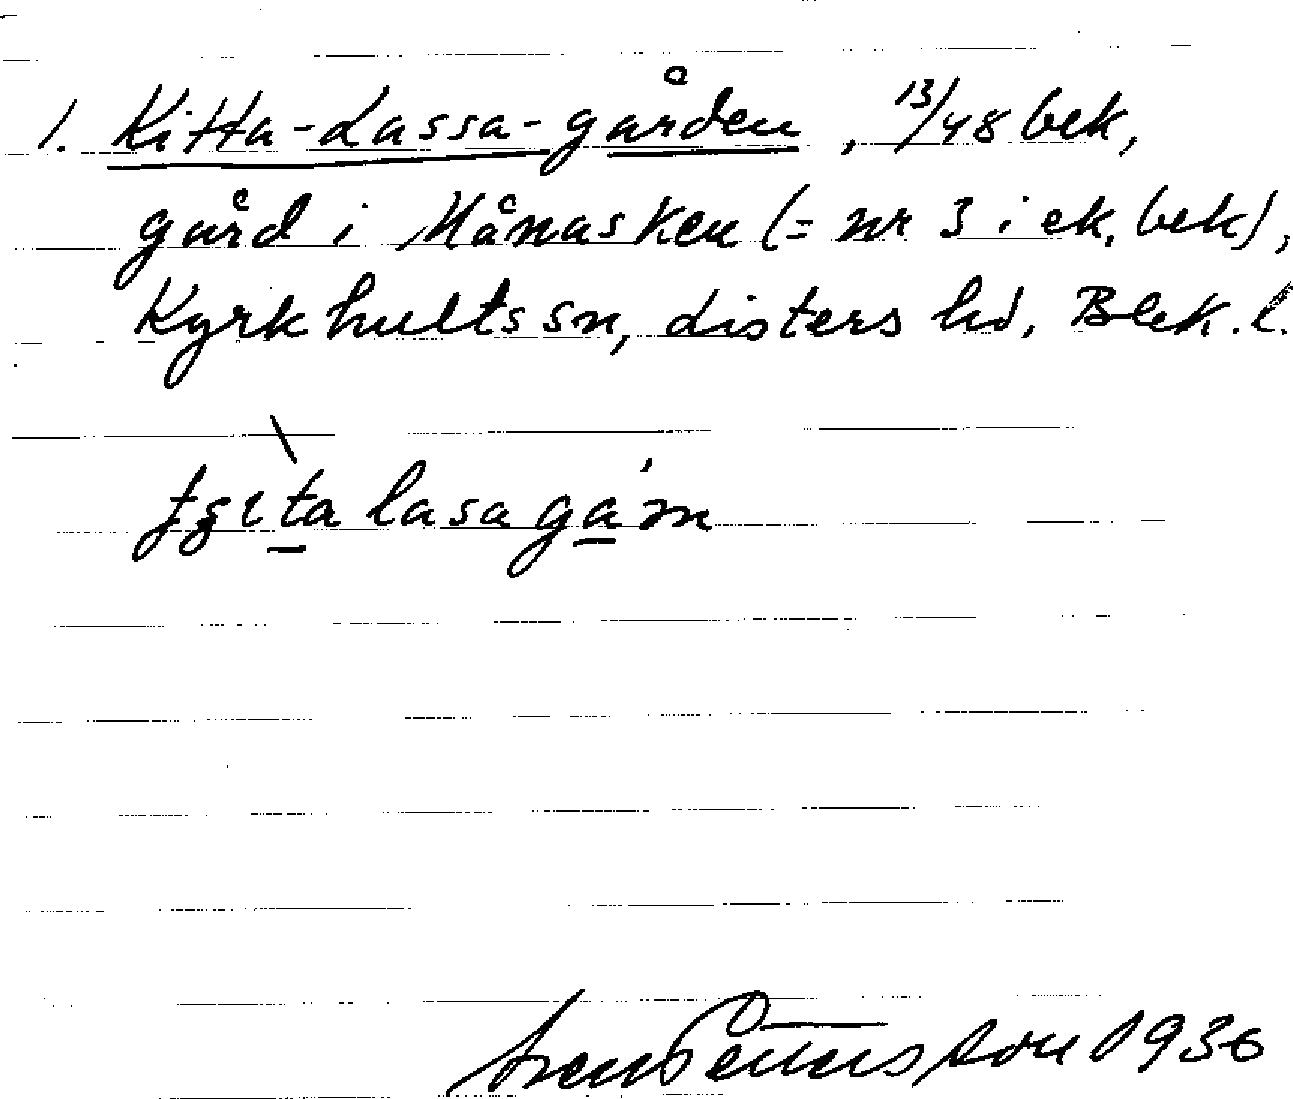 1. Kitta-Lassa-gården, 13/48 bek,
gård i Månasken (= nr 3 i ek. bek),
Kyrkhults sn, Listers hd, Blek. l.
lasagán
Sven Pettersson 1936